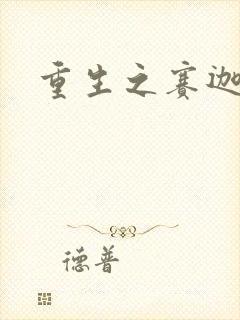 重生之赛迦
德普